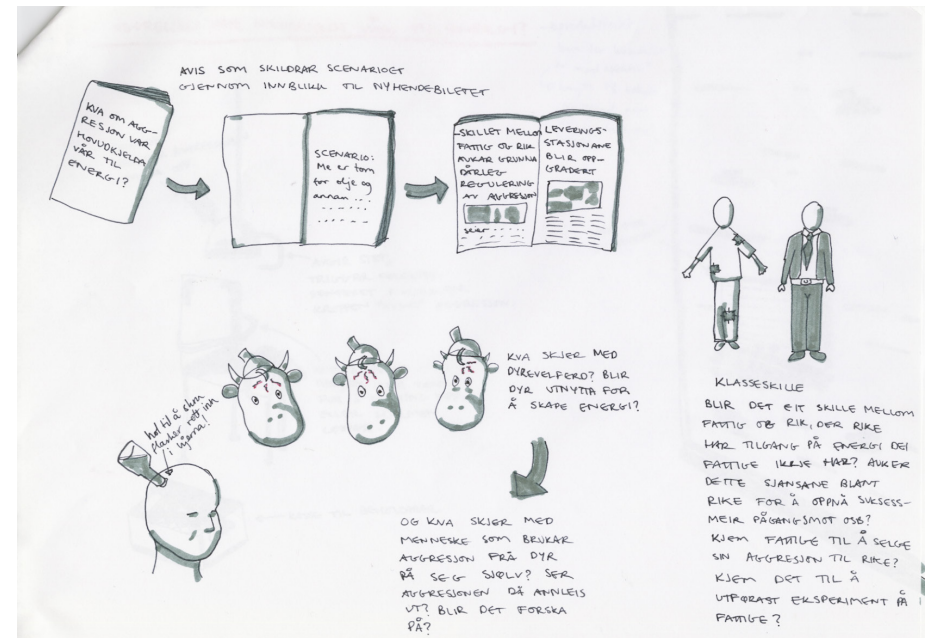 AVIS SOM SKILDRAR SCENARIOET
GJENNOM INNBLIKK TIL NYHENDEBILETET
KVA OM AGG-
RESJON VAR
HOVUDKJELDA
VÅR TIL
ENERGI?
SCENARIO:
Me er tom
for olje og
annan ...
SKILLET MELLOM
FATTIG OG RIK
AUKAR GRUNNA
DÅRLEG
REGULERING
AV AGGRESJON
LEVERINGS-
STASJONANE
BLIR OPP-
GRADERT
KVA SKJER MED
DYREVELFERD? BLIR
DYR UTNYTTA FOR
Å SKAPE ENERGI?
hol til å skru
flasker rett inn
i hjerna!
OG KVA SKJER MED
MENNESKE SOM BRUKAR
AGGRESJON FRÅ DYR
PÅ SEG SJØLV? SER
AGGRESJONEN DÅ ANNLEIS
UT? BLIR DET FORSKA
PÅ?
KLASSESKILLE
BLIR DET EIT SKILLE MELLOM
FATTIG OG RIK, DER RIKE
HAR TILGANG PÅ ENERGI DEI
FATTIGE IKKJE HAR? AUKER
DETTE SJANSANE BLANT
RIKE FOR Å OPPNÅ SUKSESS-
MEIR PÅGANGSMOT OSB?
KJEM FATTIGE TIL Å SELGE
SIN AGGRESJON TIL RIKE?
KJEM DET TIL Å
UTFØRAST EKSPERIMENT PÅ
FATTIGE?